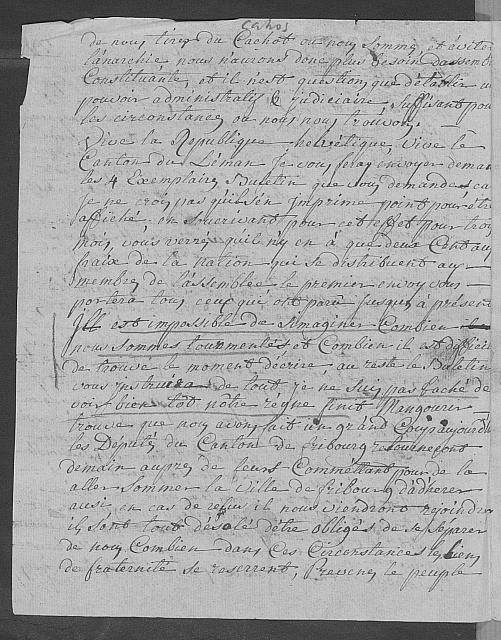 Cahos
de nous tirer du Cachot ou nous Somme, et éviter
l'anarchie nous naurons donc plus besoin dassemb
Constituante, et il n'est question que détablir un
pouvoir administratif & judiciaire Suffisant pour
les circonstances ou nous nous trouvons. —
Vive la Republique helvétique, Vive le
Canton du Léman Je vous feray envoyer demain
les 4 Exemplaires Buletin que vous demandes car
Je ne crois pas quil s'en Imprime point pour étre
affiché en Souscrivant pour cet effet pour trois
mois, vous verrez quil n'y en à que deux Cent aux
fraix de la nation qui se distribuent aux
membres de l'assemblée le premier envoy vous
portera tous ceux qui ont paru Jusqu'a présent
Ill est impossible de simaginer Combien il
nous sommes tourmentés et Combien il est difficile
de trouve le moment décrire, au reste le Buletin
vous instruira de tout je ne Suis pas faché de
voir bien tôt nôtre régne finit Mangourer
trouve que nous avons fait un grand Coup aujourd'hu
les Députés du Canton de fribourg retourneront
demain aupres de leurs Commettant pour de la
aller Sommer la Ville de fribourg d'adherer
aussi en cas de refus il nous viendront rejoindre
ils sont tout désolé dêtre obligés de se séparer
de nous Combien dans Ces Circonstances les liens
de fraternité se reserrent, Prevenez le peuple